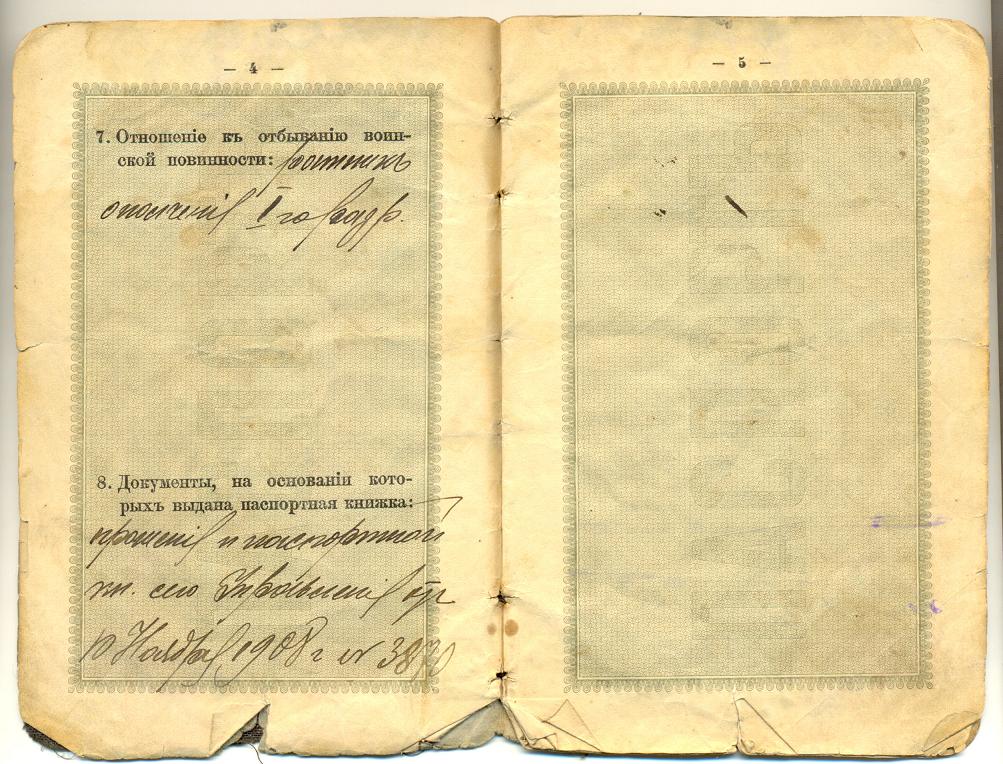 — 4 —
7. Отношеніе къ отбыванію воин-
ской повинности: ратникъ
ополченія I го разр.
8. Документы, на основаніи кото-
рыхъ выдана паспортная книжка:
прошенія и паспортной
кн. сего
10 Ноября 1908 г № 3870
— 5 —